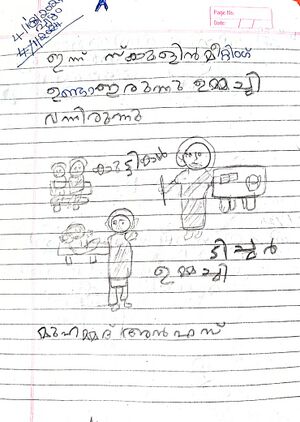 A
Page No.
Date: / /
ഇന്ന് സ്ക്കൂളിൽ മീറ്റിംഗ്
ഉണ്ടായിരുന്നു ഉമ്മച്ചി
വന്നിരുന്നു
കുട്ടികൾ
ടീച്ചർ
ഉമ്മച്ചി
മുഹമ്മദ് അൻഫസ്